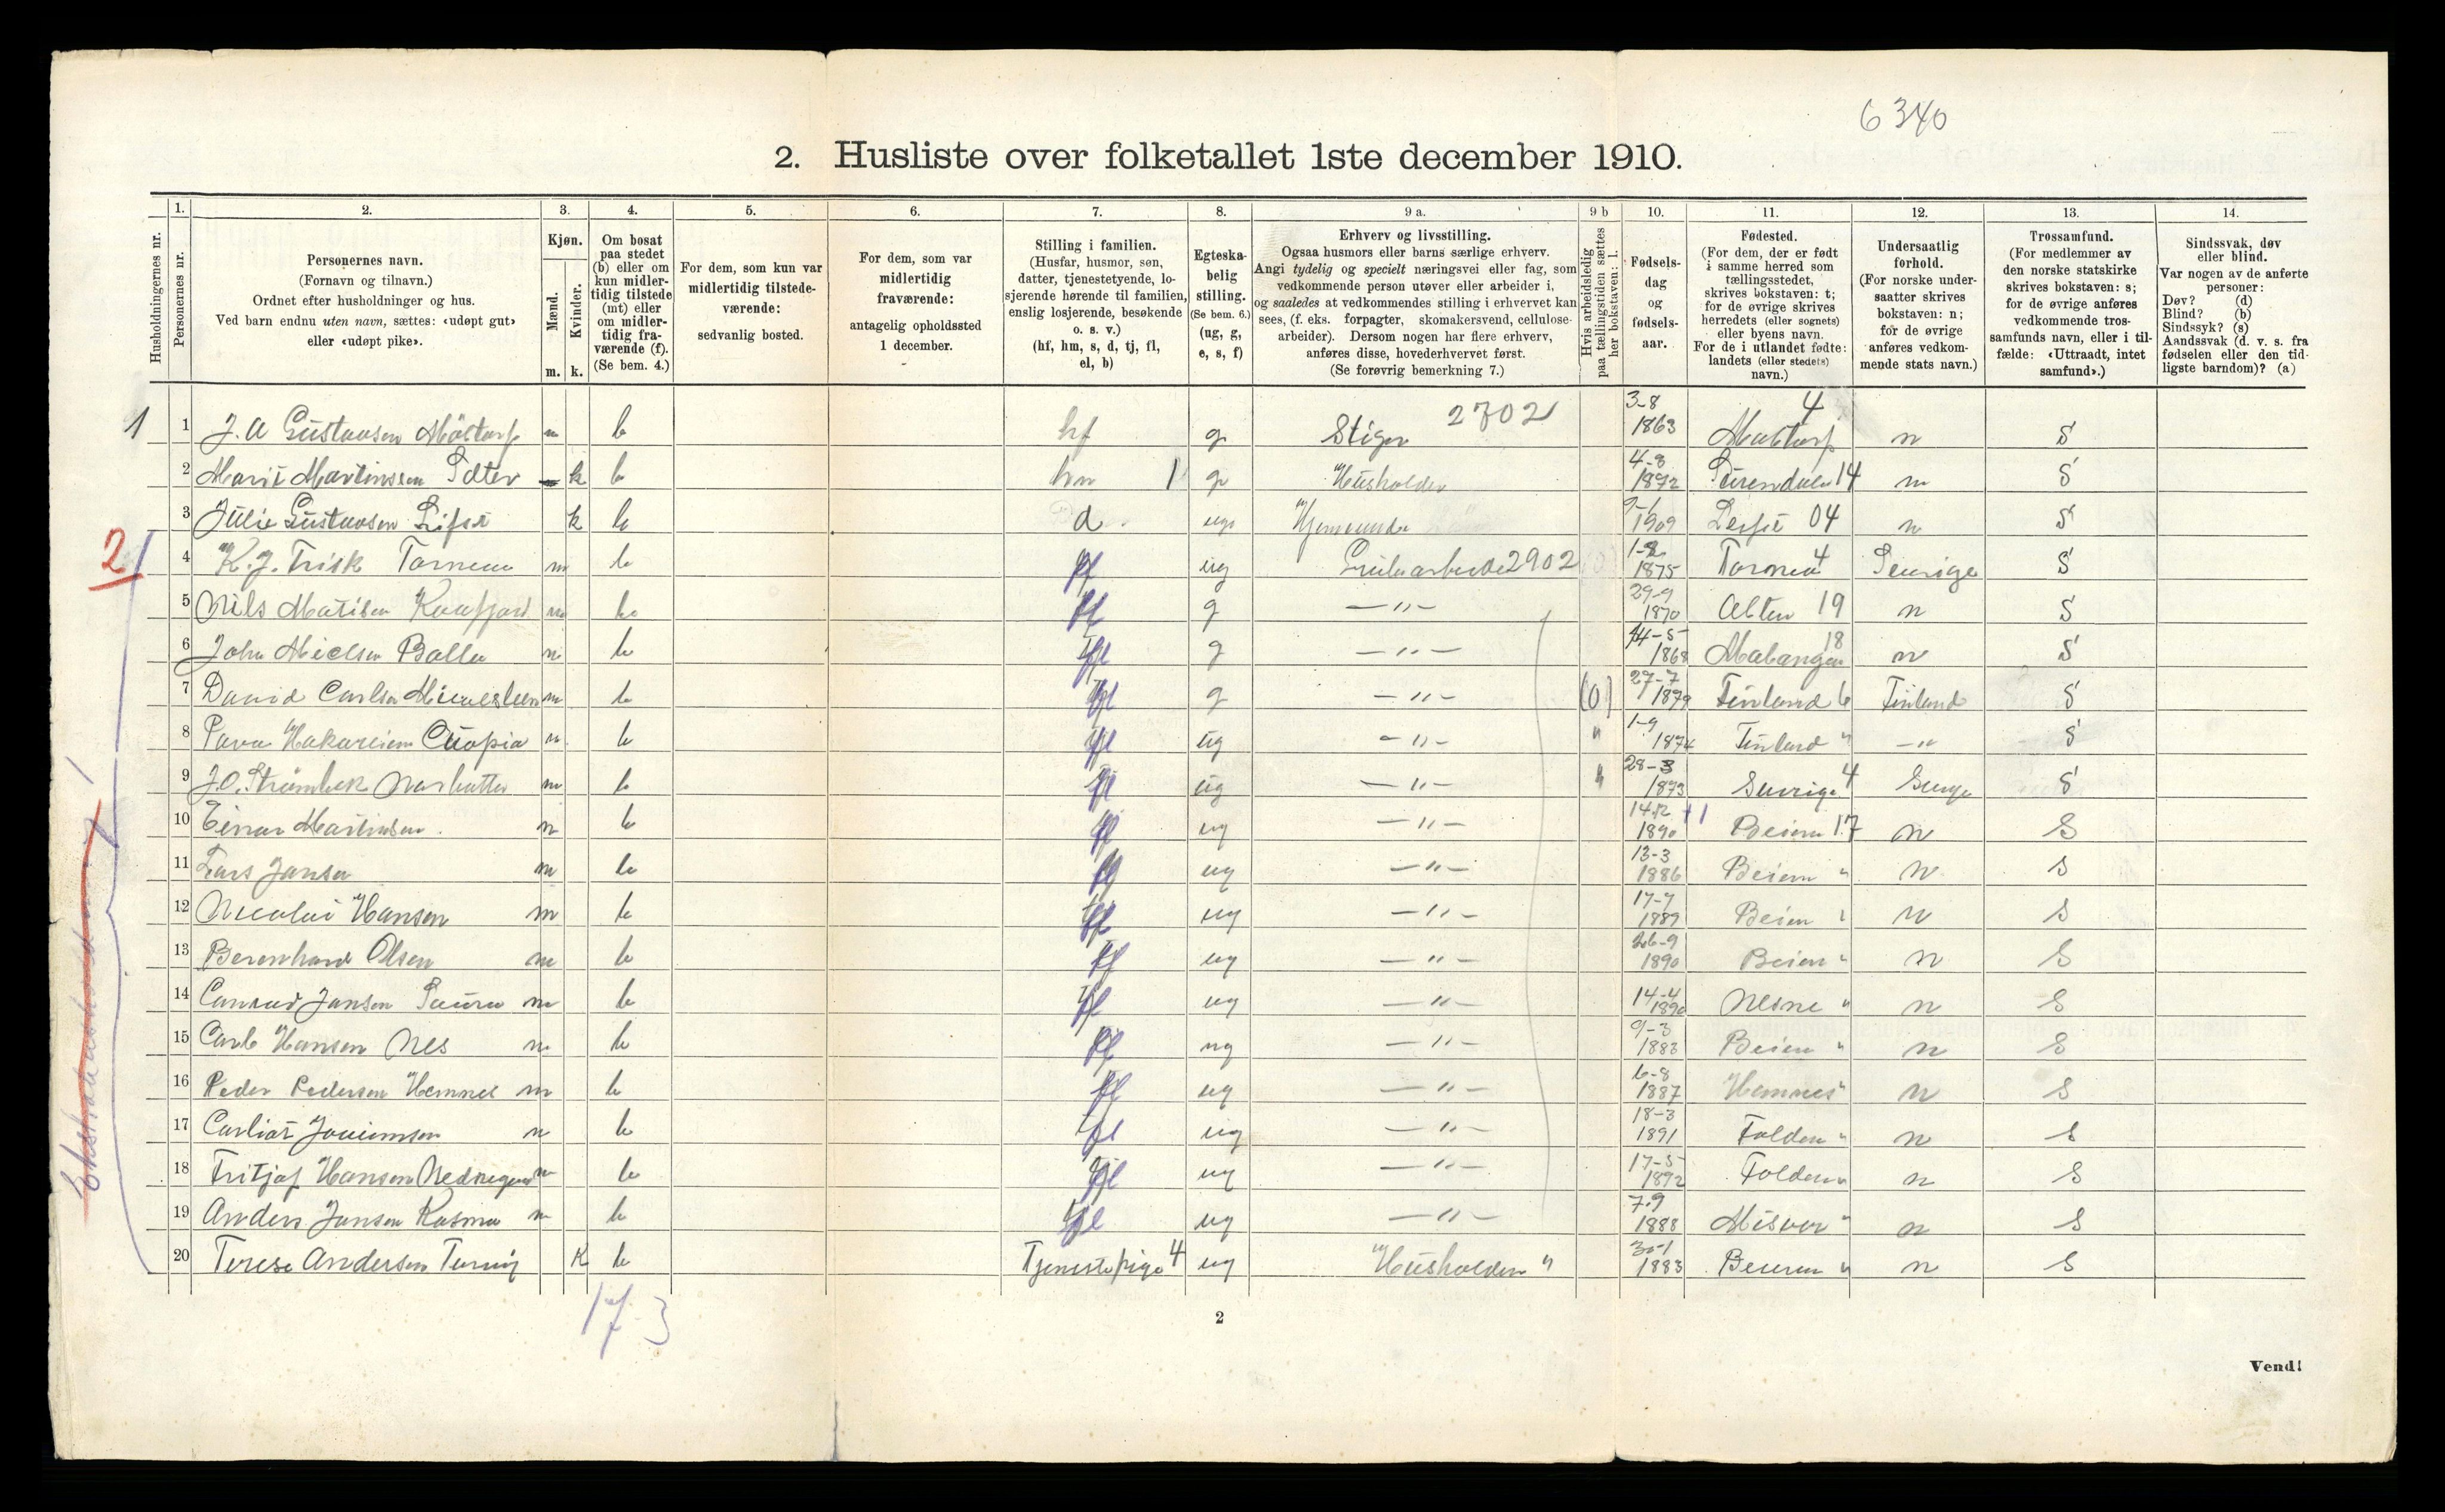 6340
2. Husliste over folketallet 1ste december 1910.
Husholdningernes nr.
1. Personernes nr.
2. Personernes navn. (Fornavn og tilnavn.) Ordnet efter husholdninger og hus. Ved barn endnu uten navn, sættes: «udøpt gut» eller «udøpt pike».
3. Kjøn. Mænd. m. Kvinder. k.
4. Om bosat paa stedet (b) eller om kun midlertidig tilstede (mt) eller om midlertidig fraværende (f). (Se bem. 4.)
5. For dem, som kun var midlertidig tilstedeværende: sedvanlig bosted.
6. For dem, som var midlertidig fraværende: antagelig opholdssted 1 december.
7. Stilling i familien. (Husfar, husmor, søn, datter, tjenestetyende, losjerende hørende til familien, enslig losjerende, besøkende o. s. v.) (hf, hm, s, d, tj, fl, el, b)
8. Egteskabelig stilling. (Se bem. 6.) (ug, g, e, s, f)
9 a. Erhverv og livsstilling. Ogsaa husmors eller barns særlige erhverv. Angi tydelig og specielt næringsvei eller fag, som vedkommende person utøver eller arbeider i, og saaledes at vedkommendes stilling i erhvervet kan sees, (f. eks. forpagter, skomakersvend, cellulosearbeider). Dersom nogen har flere erhverv, anføres disse, hovederhvervet først. (Se forøvrig bemerkning 7.)
9 b Hvis arbeidsledig paa tællingstiden sættes her bokstaven: l.
10. Fødselsdag og fødselsaar.
11. Fødested. (For dem, der er født i samme herred som tællingsstedet, skrives bokstaven: t; for de øvrige skrives herredets (eller sognets) eller byens navn. For de i utlandet fødte: landets (eller stedets) navn.)
12. Undersaatlig forhold. (For norske undersaatter skrives bokstaven: n; for de øvrige anføres vedkommende stats navn.)
13. Trossamfund. (For medlemmer av den norske statskirke skrives bokstaven: s; for de øvrige anføres vedkommende trossamfunds navn, eller i tilfælde: «Uttraadt, intet samfund».)
14. Sindssvak, døv eller blind. Var nogen av de anførte personer: Døv? (d) Blind? (b) Sindssyk? (s) Aandssvak (d. v. s. fra fødselen eller den tidligste barndom)? (a)
1 1 J. A Gustavsen m b hf g Stiger 2702 3-8 1863 4 n S
2 Marit Martinsen k b hm 1 g Husholder 4-8 1872 14 n S
3 Julie Gustavsen k b d ug Hjemme 1909 04 n S
2 4 K. J. Frisk m b ug Grubearbeide 2902 1875 Tornea 4 Sverige S
5 Nils Matisen Kaafjord m b g —"— 29-9 1870 Alten 19 n S
6 John Nielsen Balle m b g —"— 14-5 1868 Malangen 18 n S
7 David Carlsen m b g —"— (0) 27-7 1879 Finland 6 Finland S
8 m b ug —"— " 1-9 1874 Finland " —"— S
9 J. O. m b ug —"— " 28-3 1873 Sverige 4 S
10 Einar Martinsen m b ug —"— 1890 Beiern 17 n S
11 Lars Jansen m b ug —"— 13-3 1886 Beiern " n S
12 Nicolai Hansen m b ug —"— 17-7 1889 Beien " n S
13 Berenhard Olsen m b ug —"— 26-9 1890 Beien " n S
14 Conrad Jansen m b ug —"— 14-4 1890 Nesne " n S
15 Carl Hansen Nes m b ug —"— 9-3 1883 Beien " n S
16 Peder Pedersen Hemnes m b ug —"— 6-8 1887 Hemnes " n S
17 m b ug —"— 18-3 1891 Folden " n S
18 Fritjof Hansen m b ug —"— 17-5 1892 Folden " n S
19 Anders Jansen m b ug —"— 7-9 1888 Misvær " n S
20 Terese Andersen k b Tjenestepige 4 ug Husholder " 30-1 1883 " n S
17 3
2
Vend!